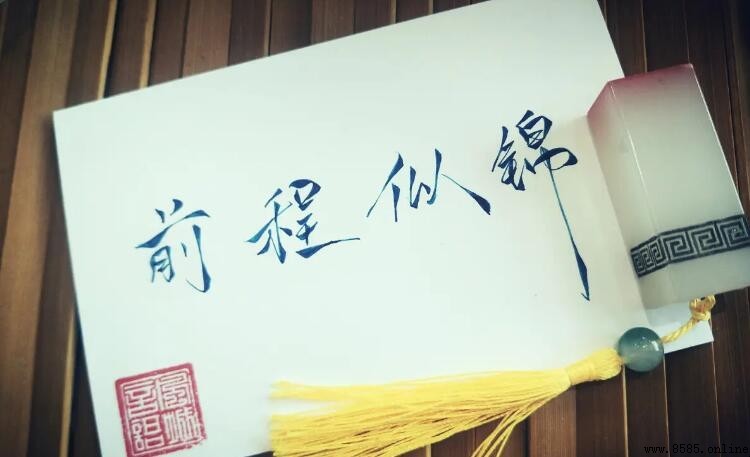 前程似锦
www.8585.online